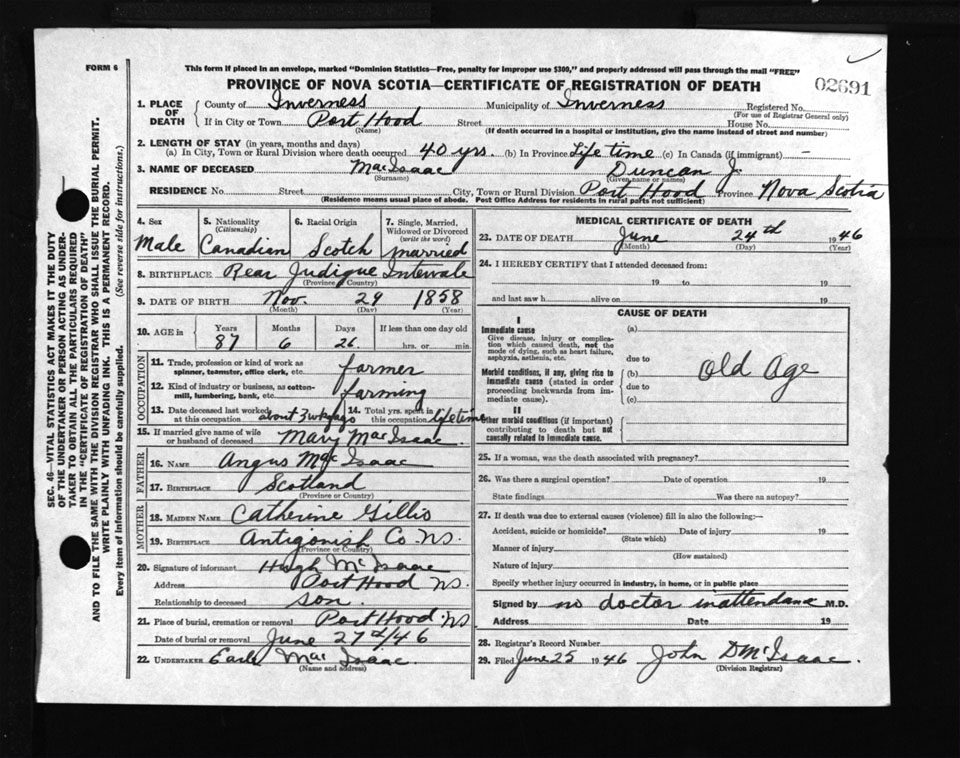 FORM 6
This form if placed in an envelope, marked "Dominion Statistics—Free, penalty for improper use $300," and properly addressed will pass through the mail "FREE"
PROVINCE OF NOVA SCOTIA—CERTIFICATE OF REGISTRATION OF DEATH
02691
SEC. 46—VITAL STATISTICS ACT MAKES IT THE DUTY
OF THE UNDERTAKER OR PERSON ACTING AS UNDER-
TAKER TO OBTAIN ALL THE PARTICULARS REQUIRED
IN THE "CERTIFICATE OF REGISTRATION OF DEATH"
AND TO FILE THE SAME WITH THE DIVISION REGISTRAR WHO SHALL ISSUE THE BURIAL PERMIT.
WRITE PLAINLY WITH UNFADING INK. THIS IS A PERMANENT RECORD.
Every item of information should be carefully supplied. (See reverse side for instructions.)
1. PLACE OF DEATH
County of Inverness Municipality of Inverness Registered No.
(For use of Registrar General only)
If in City or Town Port Hood Street House No.
(Name) (If death occurred in a hospital or institution, give the name instead of street and number)
2. LENGTH OF STAY (in years, months and days)
(a) In City, Town or Rural Division where death occurred 40 yrs. (b) In Province Life time (c) In Canada (if immigrant) —
3. NAME OF DECEASED MacIsaac Duncan J.
(Surname) (Given name or names)
RESIDENCE No. Street City, Town or Rural Division Port Hood Province Nova Scotia
(Residence means usual place of abode. Post Office Address for residents in rural parts not sufficient)
4. Sex
Male
5. Nationality
(Citizenship)
Canadian
6. Racial Origin
Scotch
7. Single, Married,
Widowed or Divorced
(write the word)
married
8. BIRTHPLACE Rear Judique Intervale
(Province or Country)
9. DATE OF BIRTH Nov. 29 1858
(Month) (Day) (Year)
10. AGE in
Years Months Days If less than one day old
87 6 26 hrs. or min.
OCCUPATION
11. Trade, profession or kind of work as
spinner, teamster, office clerk, etc. farmer
12. Kind of industry or business, as cotton-
mill, lumbering, bank, etc. farming
13. Date deceased last worked
at this occupation about 3 wks ago
14. Total yrs. spent in
this occupation lifetime
15. If married give name of wife
or husband of deceased Mary MacIsaac
FATHER
16. NAME Angus MacIsaac
17. BIRTHPLACE Scotland
(Province or Country)
MOTHER
18. MAIDEN NAME Catherine Gillis
19. BIRTHPLACE Antigonish Co. N.S.
(Province or Country)
20. Signature of informant Hugh McIsaac
Address Port Hood N.S.
Relationship to deceased son.
21. Place of burial, cremation or removal Port Hood N.S.
Date of burial or removal June 27th/46
22. UNDERTAKER Earle MacIsaac.
(Name and address)
MEDICAL CERTIFICATE OF DEATH
23. DATE OF DEATH June 24th 1946
(Month) (Day) (Year)
24. I HEREBY CERTIFY that I attended deceased from:
19 to 19
and last saw h alive on 19
CAUSE OF DEATH
I
Immediate cause
Give disease, injury or complica-
tion which caused death, not the
mode of dying, such as heart failure,
asphyxia, asthenia, etc.
(a)
due to
Morbid conditions, if any, giving rise to
immediate cause (stated in order
proceeding backwards from im-
mediate cause).
(b) Old Age
due to
(c)
II
Other morbid conditions (if important)
contributing to death but not
causally related to immediate cause.
25. If a woman, was the death associated with pregnancy?
26. Was there a surgical operation? Date of operation 19
State findings Was there an autopsy?
27. If death was due to external causes (violence) fill in also the following:—
Accident, suicide or homicide? Date of injury 19
(State which)
Manner of injury
(How sustained)
Nature of injury
Specify whether injury occurred in industry, in home, or in public place
Signed by no doctor in attendance M.D.
Address Date 19
28. Registrar's Record Number
29. Filed June 25 1946 John D McIsaac.
(Division Registrar)